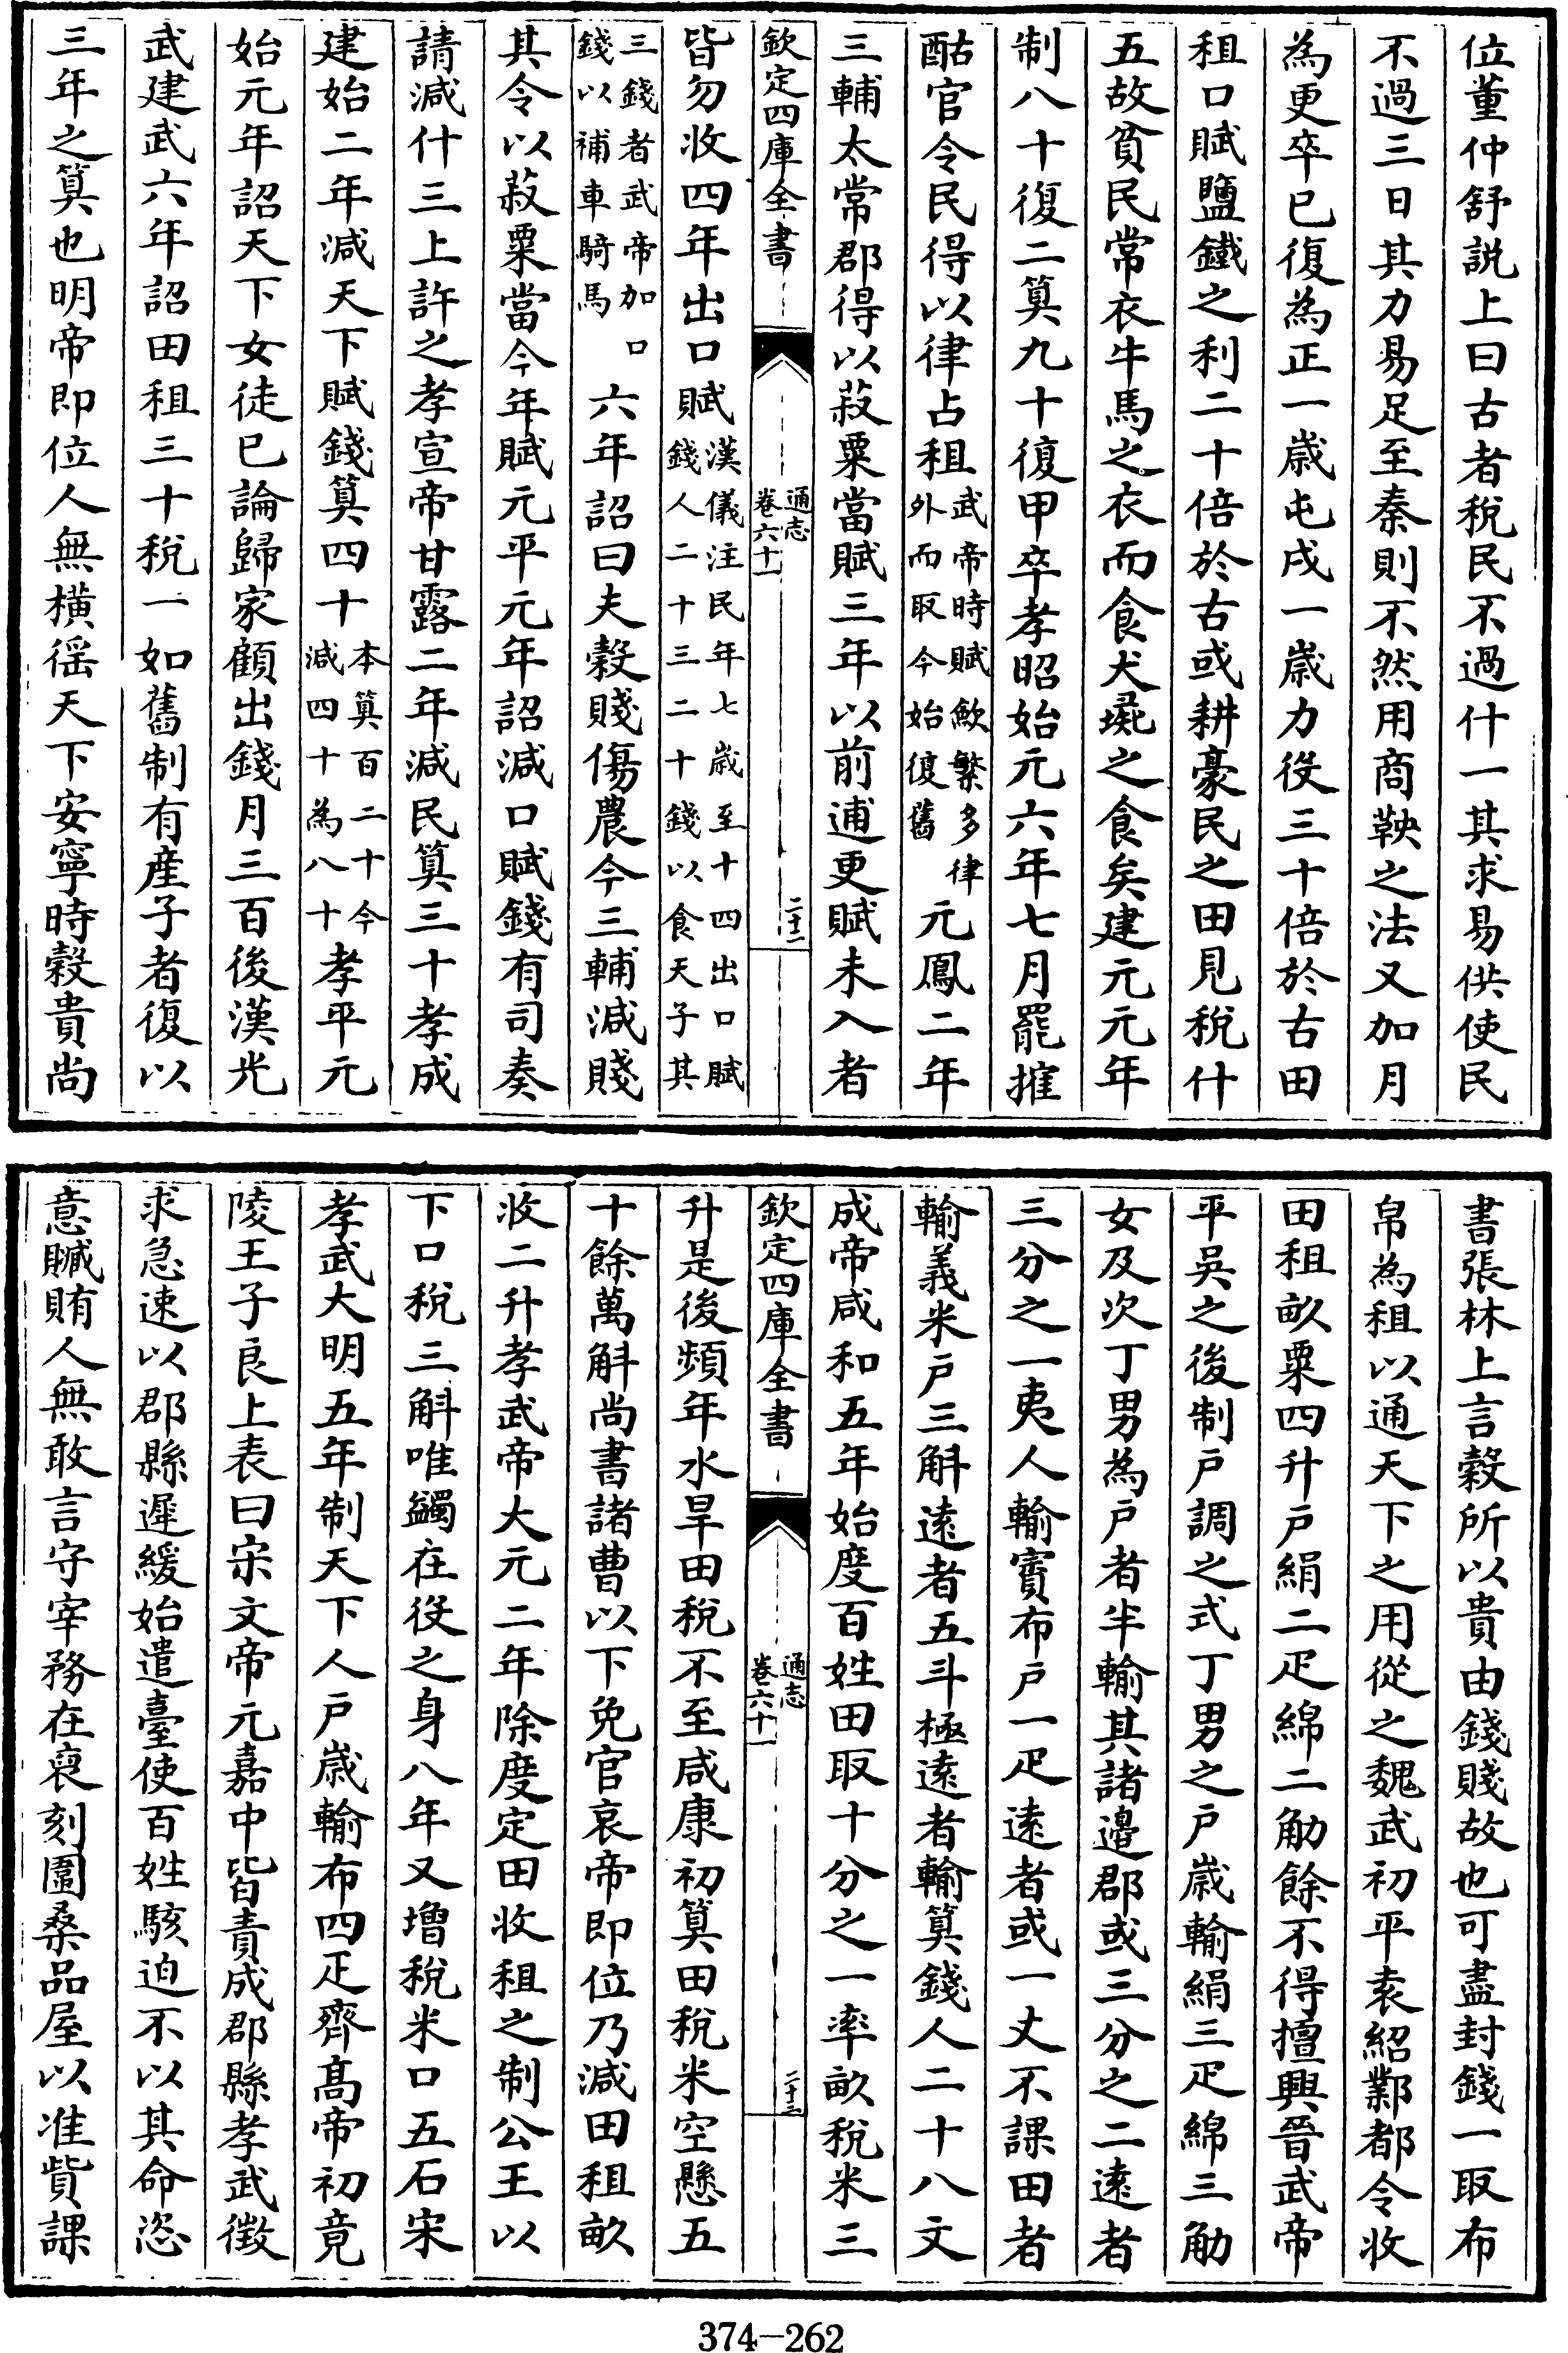 位董仲舒説上曰古者税民不過什一其求易供使民
不過三日其力易足至秦則不然用商鞅之法又加月
為更卒已復為正一歲屯戍一歲力役三十倍於古田
租口賦鹽鐵之利二十倍於古或耕豪民之田見税什
五故貧民常衣牛馬之衣而食犬彘之食矣建元元年
制八十復二算九十復甲卒孝昭始元六年七月罷搉
酤官令民得以律占租武帝時賦歛繁多律外而取今始復舊元鳳二年
三輔太常郡得以菽粟當賦三年以前逋更賦未入者
欽定四庫全書 通志 卷六十一 二十二
皆勿收四年出口賦漢儀注民年七歲至十四出口賦錢人二十三二十錢以食天子其
三錢者武帝加口錢以補車騎馬六年詔曰夫穀賤傷農今三輔減賤
其令以菽粟當今年賦元平元年詔減口賦錢有司奏
請減什三上許之孝宣帝甘露二年減民算三十孝成
建始二年減天下賦錢算四十本算百二十今減四十為八十孝平元
始元年詔天下女徒已論歸家顧出錢月三百後漢光
武建武六年詔田租三十税一如舊制有產子者復以
三年之算也明帝即位人無橫徭天下安寧時穀貴尚
書張林上言穀所以貴由錢賤故也可盡封錢一取布
帛為租以通天下之用從之魏武初平袁紹鄴都令收
田租畝粟四升戶絹二疋綿二觔餘不得擅興晉武帝
平吳之後制戶調之式丁男之戶歲輸絹三疋綿三觔
女及次丁男為戶者半輸其諸邊郡或三分之二遠者
三分之一夷人輸賨布戶一疋遠者或一丈不課田者
輸義米戶三斛遠者五斗極遠者輸算錢人二十八文
成帝咸和五年始度百姓田取十分之一率畝税米三
欽定四庫全書 通志 卷六十一 二十三
升是後頻年水旱田税不至咸康初算田税米空懸五
十餘萬斛尚書諸曹以下免官哀帝即位乃減田租畝
收二升孝武帝大元二年除度定田收租之制公王以
下口税三斛唯蠲在役之身八年又增税米口五石宋
孝武大明五年制天下人戶歲輸布四疋齊高帝初竟
陵王子良上表曰宋文帝元嘉中皆責成郡縣孝武徵
求急速以郡縣遲緩始遣臺使百姓駭迫不以其命恣
意贓賄人無敢言守宰務在裒刻圍桑品屋以准貲課
374—262